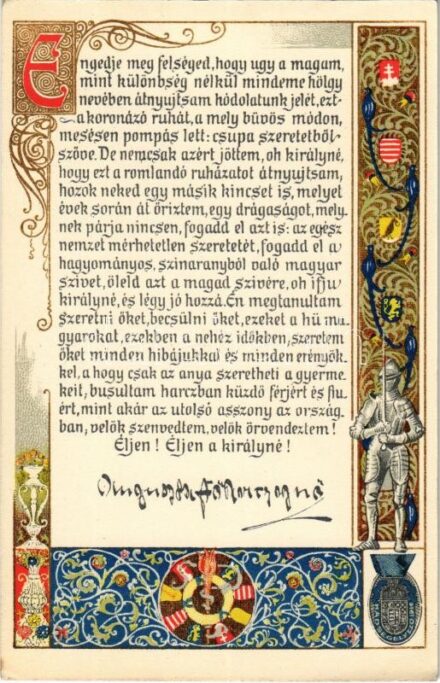 Engedje meg felséged, hogy ugy a magam,
mint különbség nélkül mindeme hölgy
nevében átnyujtsam hódolatunk jelét, ezt
a koronázó ruhát, a mely bűvös módon,
mesésen pompás lett: csupa szeretetből
szőve. De nemcsak azért jöttem, oh királyné,
hogy ezt a romlandó ruházatot átnyujtsam,
hozok neked egy másik kincset is, melyet
évek során át őriztem, egy drágaságot, mely-
nek párja nincsen, fogadd el azt is: az egész
nemzet mérhetetlen szeretetét, fogadd el a
hagyományos, szinaranyból való magyar
szivet, öleld azt a magad szivére, oh ifju
királyné, és légy jó hozzá. Én megtanultam
szeretni őket, becsülni őket, ezeket a hű ma-
gyarokat, ezekben a nehéz időkben, szeretem
őket minden hibájukkal és minden erényök-
kel, a hogy csak az anya szeretheti a gyerme-
keit, busultam harczban küzdő férjért és fiu-
ért, mint akár az utolsó asszony az ország-
ban, velök szenvedtem, velök örvendeztem!
Éljen! Éljen a királyné!
Auguszta Főherczegnő